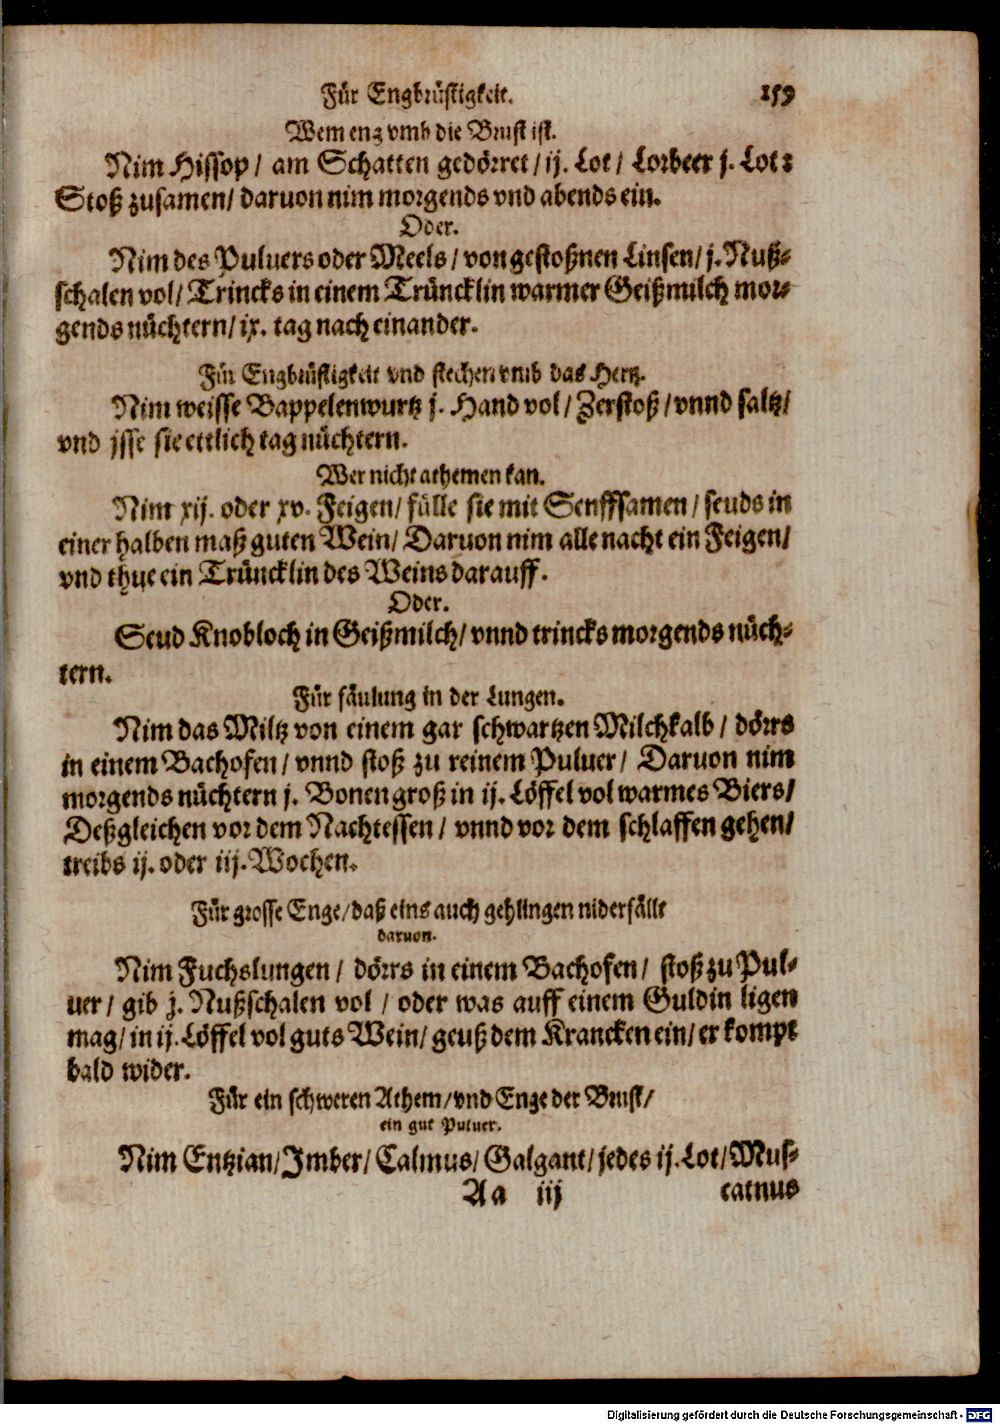 Für Engbrüstigkeit. 159
Wem eng vmb die Brust ist.
Nim Hissop/ am Schatten gedörret/ ij. Lot/ Lorbeer j. Lot:
Stoß zusamen/ daruon nim morgends vnd abends ein.
Oder.
Nim des Puluers oder Meels/ von gestoßnen Linsen/ j. Nuß-
schalen vol/ Trincks in einem Trüncklin warmer Geißmilch mor-
gends nüchtern/ ix. tag nach einander.
Für Engbrüstigkeit vnd stechen vmb das Hertz.
Nim weisse Bappelenwurtz j. Hand vol/ Zerstoß/ vnnd saltz/
vnd jsse sie ettlich tag nüchtern.
Wer nicht athemen kan.
Nim xij. oder xv. Feigen/ fülle sie mit Senffsamen/ seuds in
einer halben maß guten Wein/ Daruon nim alle nacht ein Feigen/
vnd thue ein Trüncklin des Weins darauff.
Oder.
Seud Knobloch in Geißmilch/ vnnd trincks morgends nüch-
tern.
Für fäulung in der Lungen.
Nim das Miltz von einem gar schwartzen Milchkalb/ dörrs
in einem Bachofen/ vnnd stoß zu reinem Puluer/ Daruon nim
morgends nüchtern j. Bonen groß in ij. Löffel vol warmes Biers/
Deßgleichen vor dem Nachtessen/ vnnd vor dem schlaffen gehen/
treibs ij. oder iij. Wochen.
Für grosse Enge/ daß eins auch gehlingen niderfällt
daruon.
Nim Fuchslungen/ dörrs in einem Bachofen/ stoß zu Pul-
uer/ gib j. Nußschalen vol/ oder was auff einem Guldin ligen
mag/ in ij. Löffel vol guts Wein/ geuß dem Krancken ein/ er kompt
bald wider.
Für ein schweren Athem/ vnd Enge der Brust/
ein gut Puluer.
Nim Entzian/ Jmber/ Calmus/ Galgant/ jedes ij. Lot/ Mus-
Aa iij catnus
Digitalisierung gefördert durch die Deutsche Forschungsgemeinschaft - DFG